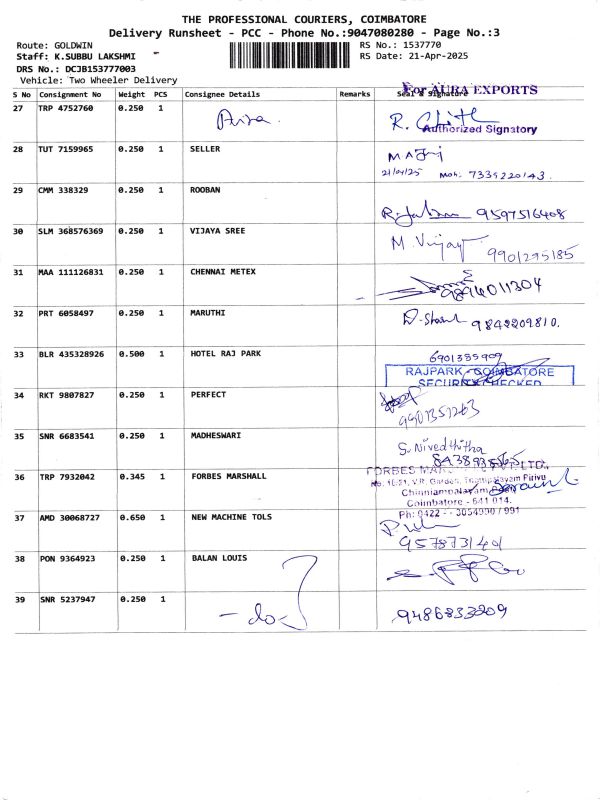 THE PROFESSIONAL COURIERS, COIMBATORE
Delivery Runsheet - PCC - Phone No.:9047080280 - Page No.:3
Route: GOLDWIN
RS No.: 1537770
Staff: K.SUBBU LAKSHMI
RS Date: 21-Apr-2025
DRS No.: DCJB153777003
Vehicle: Two Wheeler Delivery
S No Consignment No Weight PCS Consignee Details Remarks Seal & Signature
For AURA EXPORTS
27 TRP 4752760 0.250 1
Authorized Signatory
28 TUT 7159965 0.250 1 SELLER
21/04/25 Mob. 7339220143
29 CMM 338329 0.250 1 ROOBAN
9597516408
30 SLM 368576369 0.250 1 VIJAYA SREE
M. Vijay
9901295185
31 MAA 111126831 0.250 1 CHENNAI METEX
9894011304
32 PRT 6058497 0.250 1 MARUTHI
9842209810.
33 BLR 435328926 0.500 1 HOTEL RAJ PARK
6901335909
RAJPARK - COIMBATORE
SECURITY CHECKED
34 RKT 9807827 0.250 1 PERFECT
35 SNR 6683541 0.250 1 MADHESWARI
S. Nivedthitha
36 TRP 7932042 0.345 1 FORBES MARSHALL
FORBES LTD.
Chinniampalayam
Coimbatore - 641 014.
Ph: 0422 - 3054900 / 991
37 AMD 30068727 0.650 1 NEW MACHINE TOLS
38 PON 9364923 0.250 1 BALAN LOUIS
39 SNR 5237947 0.250 1
- do -
9486833209